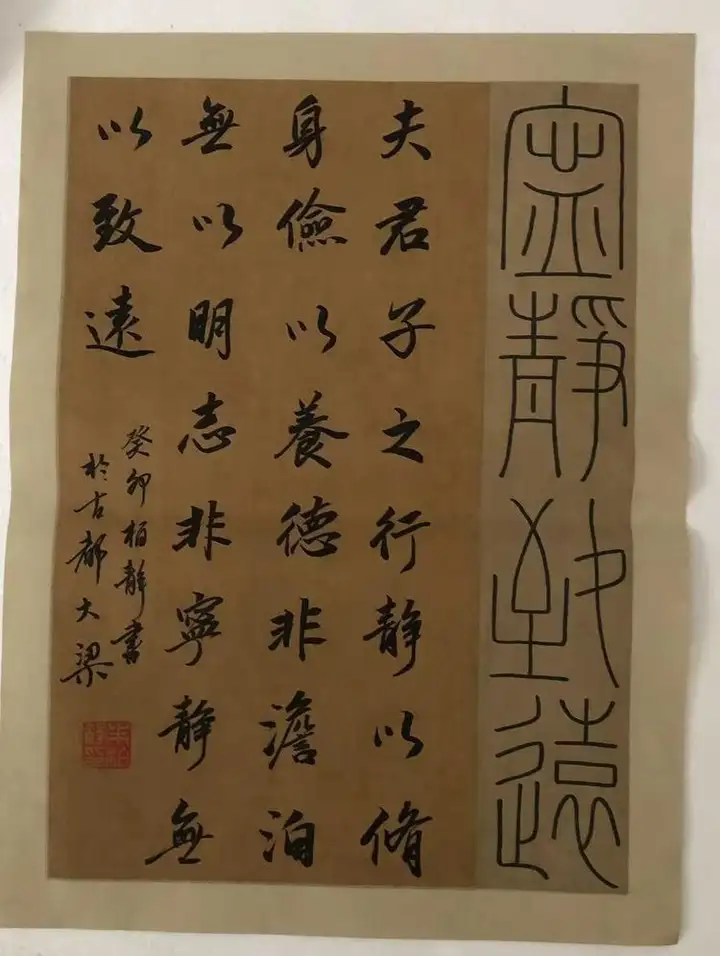 寧靜致遠
夫君子之行靜以脩
身儉以養德非澹泊
無以明志非寧靜無
以致遠
癸卯柏靜書
於古都大梁